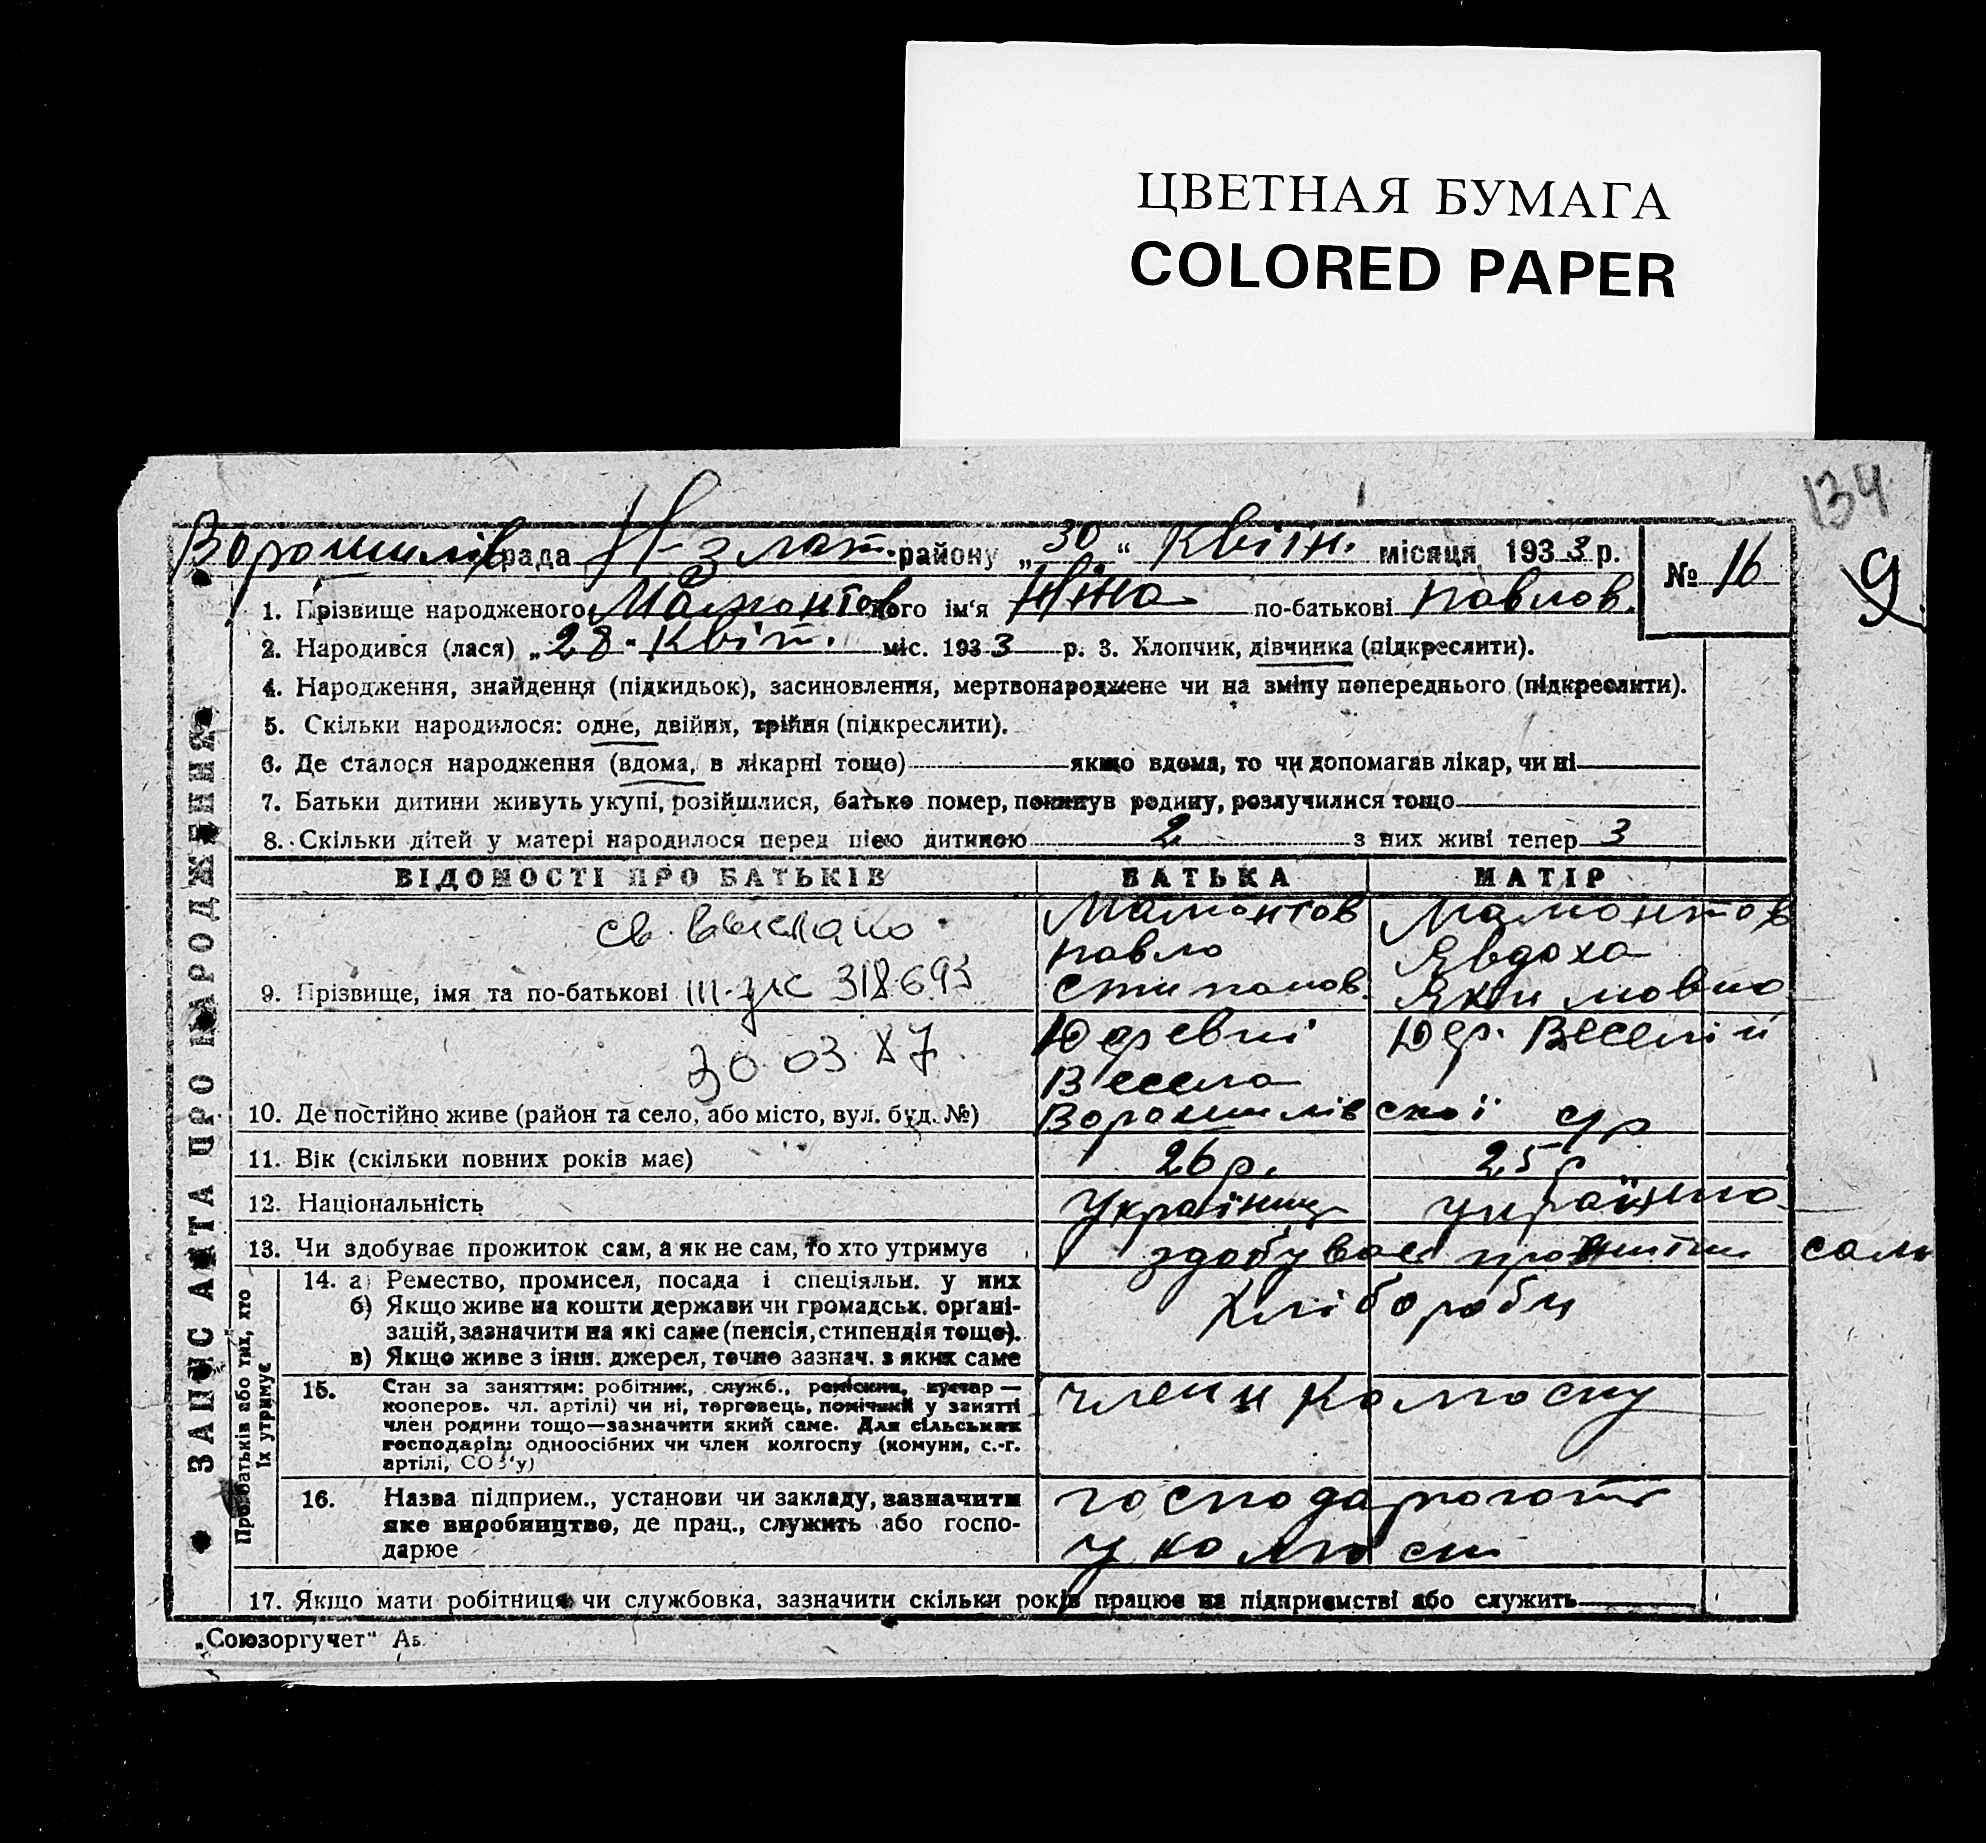 ЦВЕТНАЯ БУМАГА
COLORED PAPER
134
Ворошилів рада Н-злат. району „30“ Квітн. місяця 1933 р.
№ 16
9
1. Прізвище народженого Мамонтов його ім'я Ніна по-батькові Павлов.
2. Народився (лася) „28“ Квіт. міс. 1933 р. 3. Хлопчик, дівчинка (підкреслити).
4. Народження, знайдення (підкидьок), засиновлення, мертвонароджене чи на зміну попереднього (підкреслити).
5. Скільки народилося: одне, двійня, трійня (підкреслити).
6. Де сталося народження (вдома, в лікарні тощо) якщо вдома, то чи допомагав лікар, чи ні
7. Батьки дитини живуть укупі, розійшлися, батько помер, покинув родину, розлучилися тощо
8. Скільки дітей у матері народилося перед цією дитиною 2 з них живі тепер 3
ЗАПИС АКТА ПРО НАРОДЖЕННЯ
ВІДОМОСТІ ПРО БАТЬКІВ БАТЬКА МАТІР
св. выслано
Мамонтов Павло Степанов.
Мамонтов Явдоха Якимовна
9. Прізвище, імя та по-батькові III-УК 318693
30.03.87
Деревні Весела
Дер. Веселій
10. Де постійно живе (район та село, або місто, вул. буд. №) Ворошилівскої с/р
11. Вік (скільки повних років має) 26 р. 25 р
12. Національність Українець українка
13. Чи здобуває прожиток сам, а як не сам, то хто утримує здобуває прожитки сами
Про батьків або тих, хто їх утримує
14. а) Ремество, промисел, посада і спеціяльн. у них
б) Якщо живе на кошти держави чи громадськ. органі-
зацій, зазначити на які саме (пенсія, стипендія тощо).
в) Якщо живе з інш. джерел, точно зазнач. з яких саме
Хлібороби
15. Стан за заняттям: робітник, служб., ремісник, кустар —
кооперов. чл. артілі) чи ні, торговець, помічний у занятті
член родини тощо—зазначити який саме. Для сільських
господарів: одноосібних чи член колгоспу (комуни, с.-г.
артілі, СОЗ'у)
члени колгоспу
16. Назва підприєм., установи чи закладу, зазначити
яке виробництво, де прац., служить або госпо-
дарює
господарюють
у колгоспі
17. Якщо мати робітниця чи службовка, зазначити скільки років працює на підприємстві або служить
„Союзоргучет“ Аб.